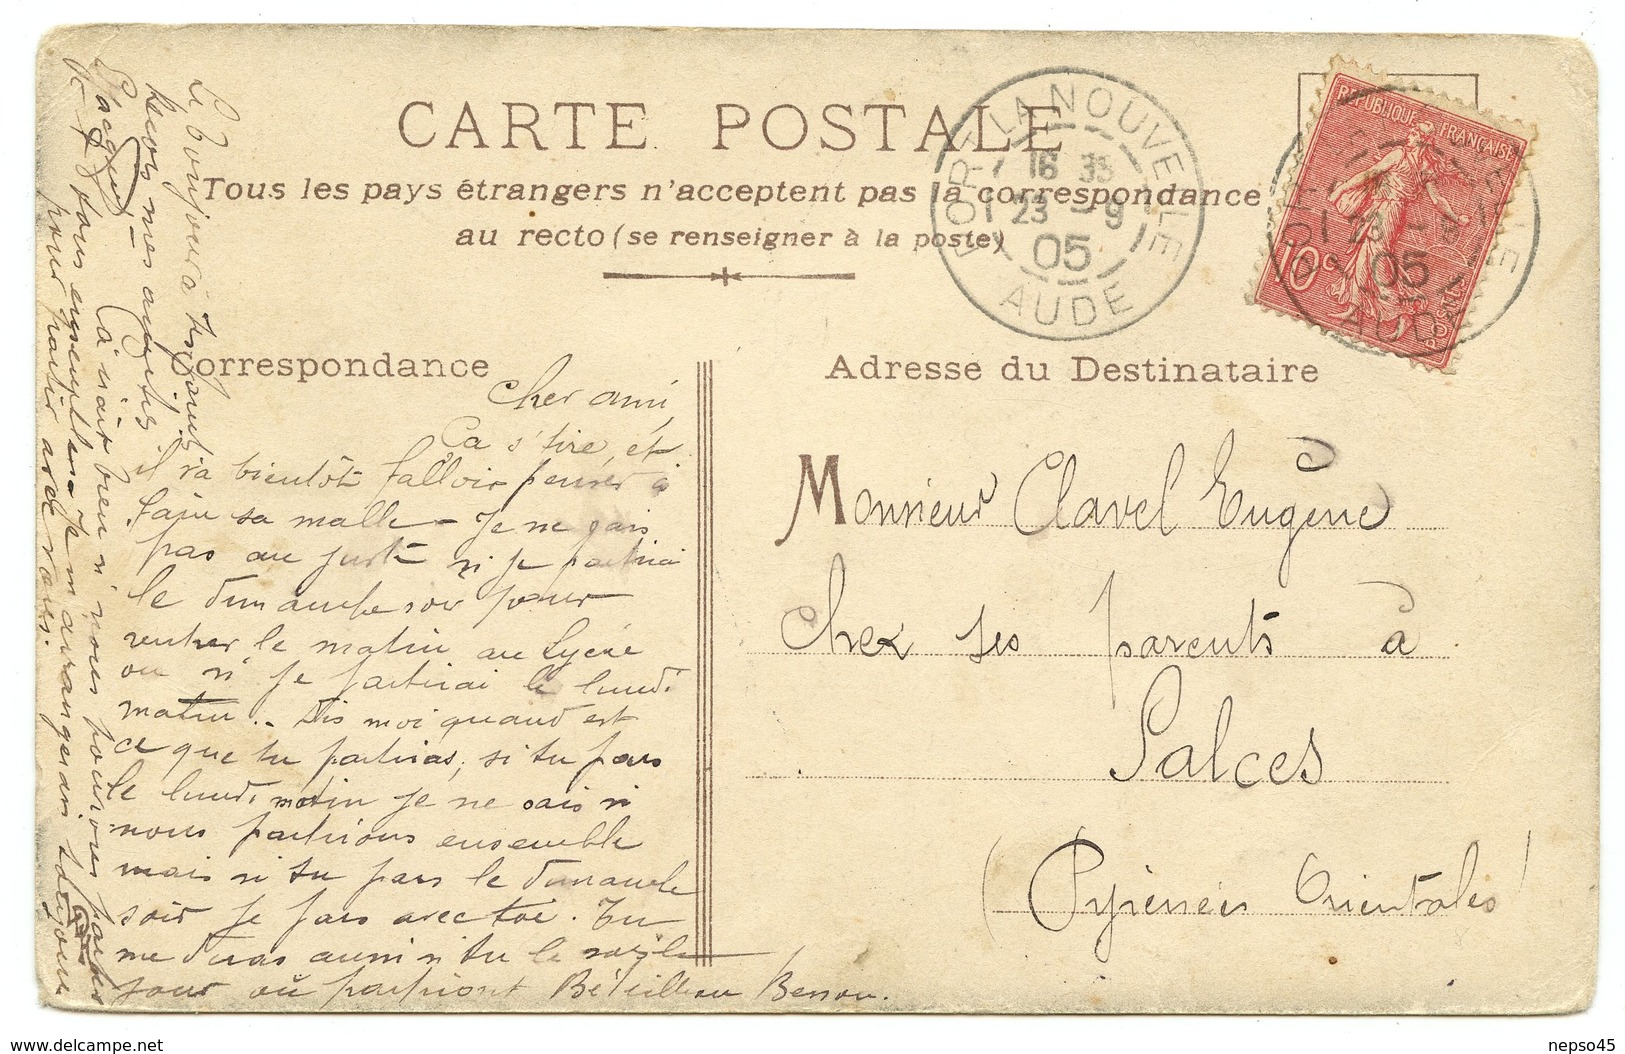 CARTE POSTALE
Tous les pays étrangers n'acceptent pas la correspondance
au recto (se renseigner à la poste)
PORT-LA NOUVELLE
16 35
23 - 9
05
AUDE
REPUBLIQUE FRANÇAISE
10c
POSTES
23 - 9
05
AUDE
Correspondance
Adresse du Destinataire
Cher ami,
Ça s'tire, et
il va bientôt falloir penser à
faire sa malle - Je ne sais
pas au juste si je partirai
le dimanche soir pour
rentrer le matin au Lycée
ou si je partirai le lundi
matin.. Dis moi quand est
ce que tu partiras, si tu pars
le lundi matin je ne sais si
nous partirions ensemble
mais si tu pars le dimanche
soir je pars avec toi. Tu
me diras aussi si tu le sais le
jour où partiront Béteille ou Besson.
Ça irait bien si nous pourions partir
tous ensemble. Je m'arrangerais toujours
pour partir avec vous.
Le bonjour à
mes amitiés
Jacques
Monsieur Clavel Eugène
Chez ses parents à
Salces
(Pyrénées Orientales)
delcampe.net
nepso45